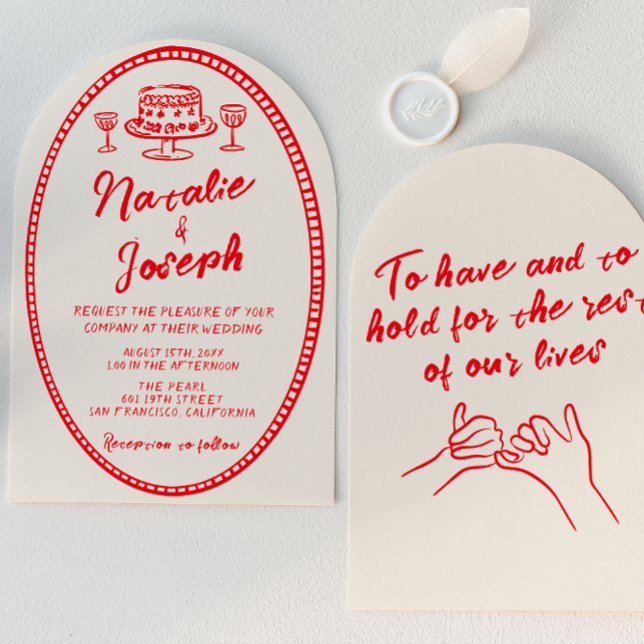 Natalie
&
Joseph
REQUEST THE PLEASURE OF YOUR
COMPANY AT THEIR WEDDING
AUGUST 15TH, 20XX
1.00 IN THE AFTERNOON
THE PEARL
601 19TH STREET
SAN FRANCISCO, CALIFORNIA
Reception to follow
To have and to
hold for the rest
of our lives